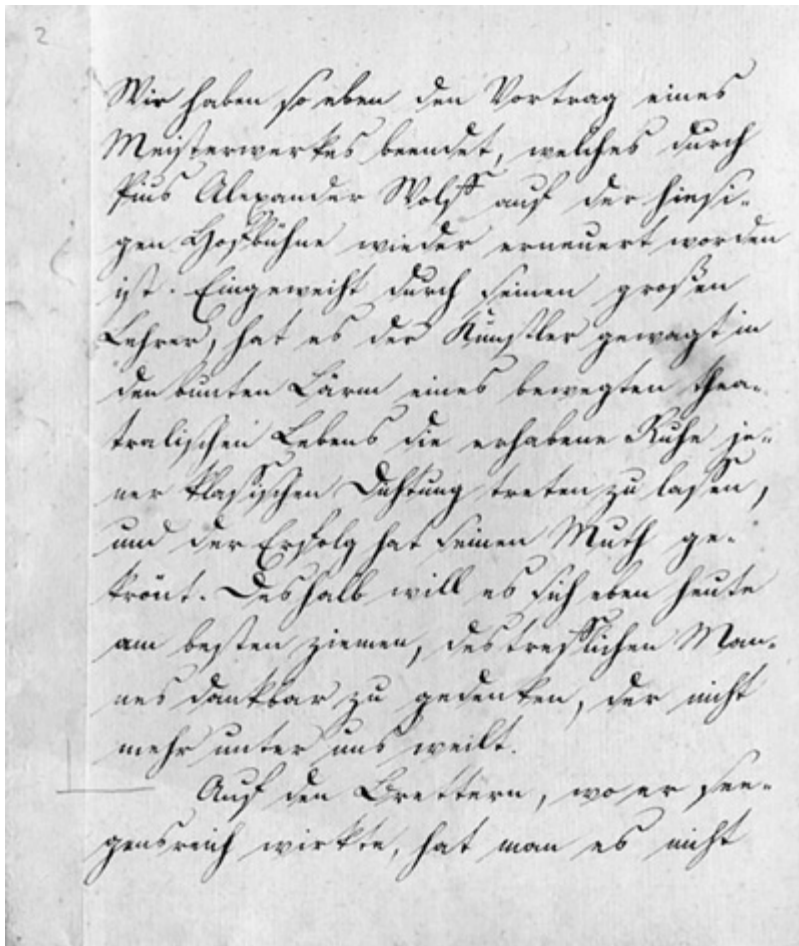 2
Wir haben so eben den Vortrag eines
Meisterwerkes beendet, welches durch
Pius Alexander Wolff auf der hiesi-
gen Hofbühne wieder erneuert worden
ist. Eingeweiht durch seinen großen
Lehrer, hat es der Künstler gewagt in
den bunten Lärm eines bewegten thea-
tralischen Lebens die erhabene Ruhe je-
ner klassischen Dichtung treten zu lassen,
und der Erfolg hat seinen Muth ge-
krönt. Deshalb will es sich eben heute
am besten ziemen, des trefflichen Man-
nes dankbar zu gedenken, der nicht
mehr unter uns weilt.
Auf den Brettern, wo er see-
gensreich wirkte, hat man es nicht